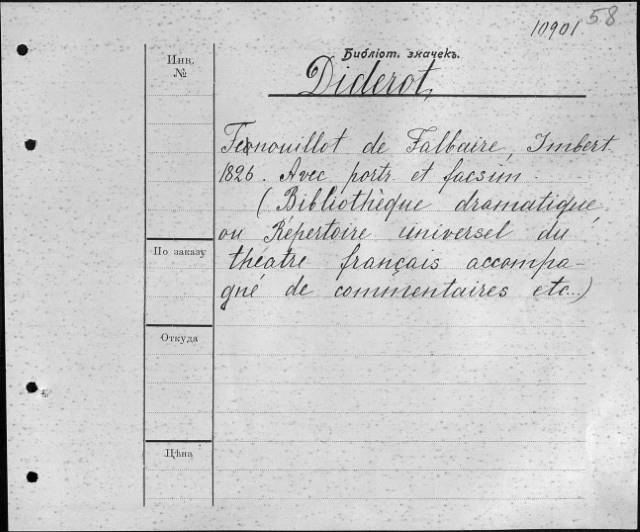 10901 58
Инв.
№
Библіот. значекъ.
Diderot,
Fenouillot de Falbaire, Imbert
1826. Avec portr. et facsim.
(Bibliothèque dramatique
ou Répertoire universel du
théatre français accompa-
gné de commentaires etc...)
По заказу
Откуда
Цѣна